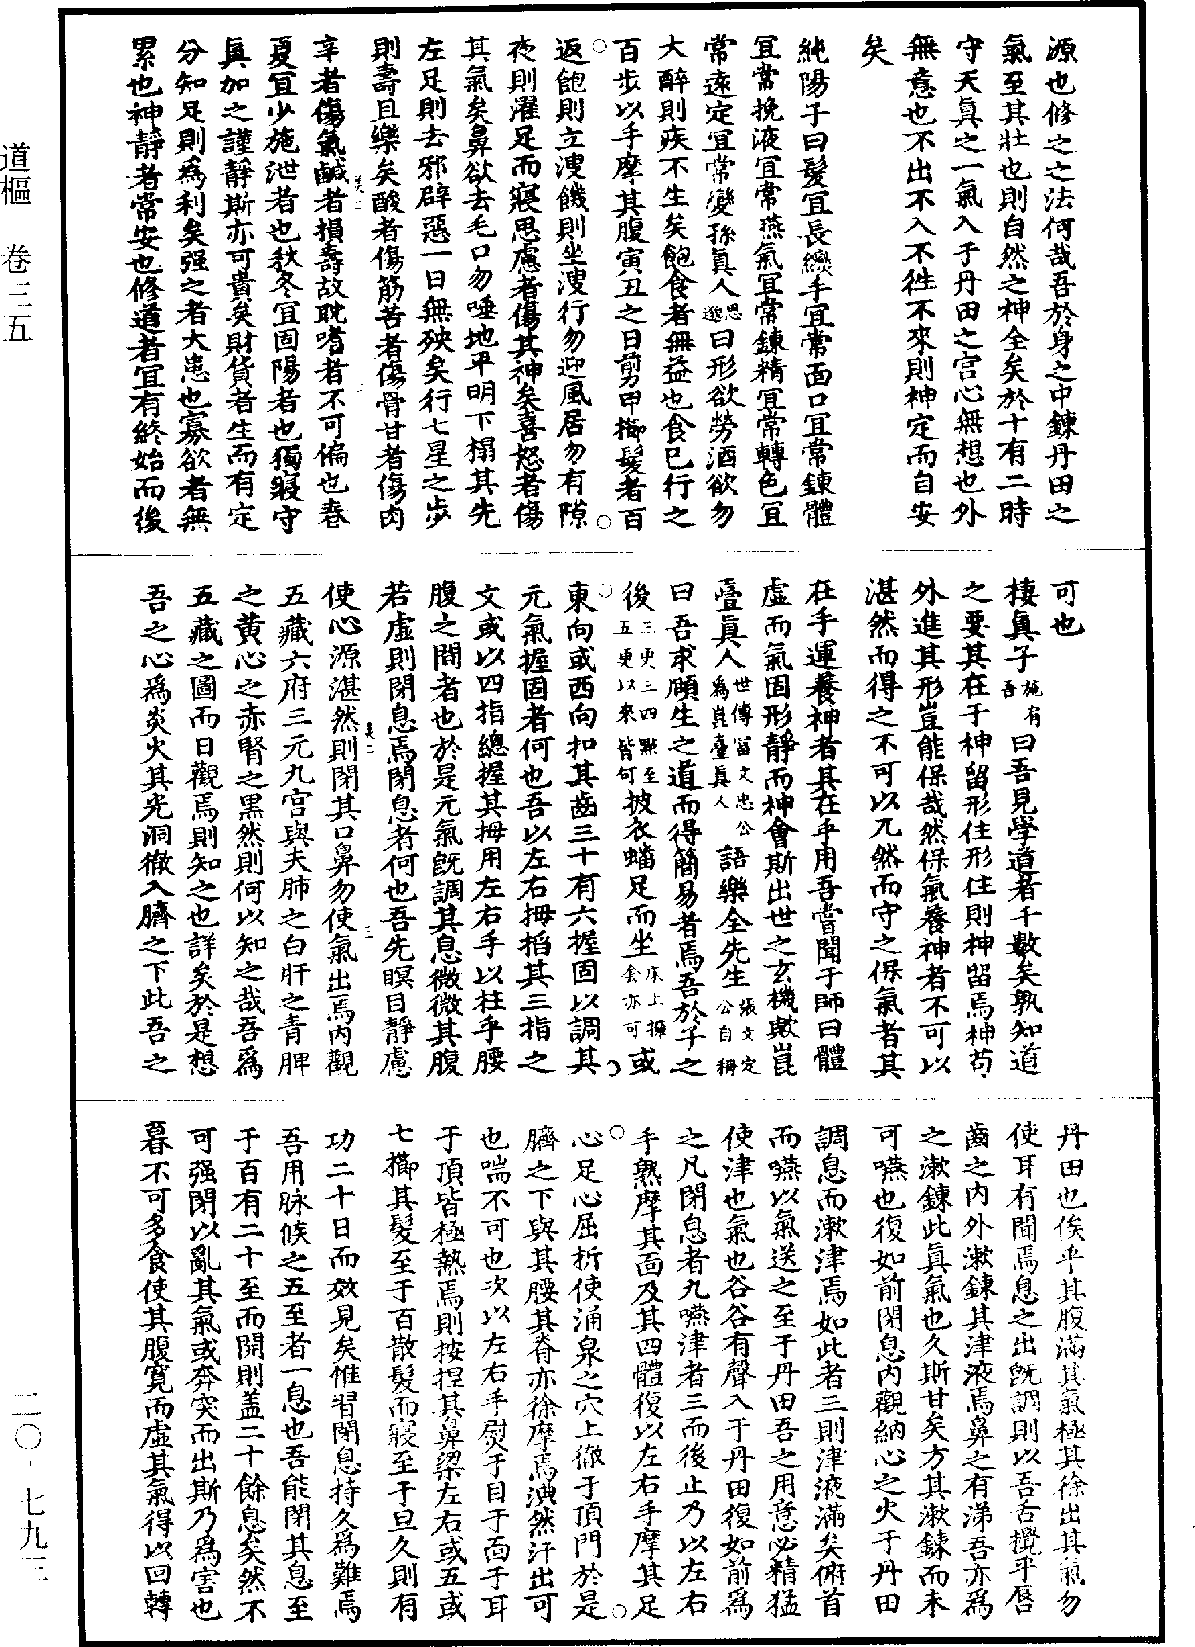 道樞 卷三五
源也修之之法何哉吾於身之中鍊丹田之
氣至其壯也則自然之神全矣於十有二時
守天真之一氣入于丹田之宮心無想也外
無意也不出不入不往不來則神定而自安
矣
純陽子曰髮宜長𣫍手宜常面口宜常鍊體
宜常挽液宜常燕氣宜常鍊精宜常轉色宜
常遠定宜常變孫真人思邈曰形欲勞酒欲勿
大醉則疾不生矣飽食者無益也食已行之
百步以手摩其腹寅丑之日剪甲櫛髮者百
返飽則立溲饑則坐溲行勿迎風居勿有隙
夜則濯足而寢思慮者傷其神矣喜怒者傷
其氣矣鼻欲去毛口勿唾地平明下榻其先
左足則去邪辟惡一日無殃矣行七星之步
則壽且樂矣酸者傷筋苦者傷骨甘者傷肉
辛者傷氣鹹者損壽故耽嗜者不可偏也春
夏宜少施泄者也秋冬宜固陽者也獨寢守
真加之謹靜斯亦可貴矣財貨者生而有定
分知足則為利矣强之者大患也寡欲者無
累也神靜者常安也修道者宜有終始而後
可也
棲真子施肩吾有曰吾見學道者千數矣孰知道
之要其在于神留形住形住則神留焉神苟
外進其形豈能保哉然保氣養神者不可以
湛然而得之不可以兀然而守之保氣者其
在乎運養神者其在乎用吾嘗聞于師曰體
虛而氣固形靜而神會斯出世之玄機歟崑
臺真人世傳富文忠公為崑臺真人語樂全先生張文定公自稱
曰吾求頤生之道而得簡易者焉吾於子之
後三更三四點至五更以來皆可披衣蟠足而坐床上擁衾亦可或
東向或西向扣其齒三十有六握固以調其
元氣握固者何也吾以左右拇掐其三指之
文或以四指總握其拇用左右手以柱乎腰
腹之間者也於是元氣旣調其息微微其腹
若虛則閉息焉閉息者何也吾先瞑目靜慮
使心源湛然則閉其口鼻勿使氣出焉內觀
五藏六府三元九宮與夫肺之白肝之青脾
之黃心之赤腎之黑然則何以知之哉吾為
五藏之圖而日觀焉則知之也詳矣於是想
吾之心為炎火其光洞徹入臍之下此吾之
丹田也俟乎其腹滿其氣極其徐出其氣勿
使耳有聞焉息之出旣調則以吾舌攪乎唇
齒之內外漱鍊其津液焉鼻之有涕吾亦為
之漱鍊此真氣也久斯甘矣方其漱鍊而未
可嚥也復如前閉息內觀納心之火于丹田
調息而漱津焉如此者三則津液滿矣俯首
而嚥以氣送之至于丹田吾之用意必精猛
使津也氣也谷谷有聲入于丹田復如前為
之凡閉息者九嚥津者三而後止乃以左右
手熟摩其面及其四體復以左右手摩其足
心足心屈折使涌泉之穴上徹于頂門於是
臍之下與其腰其脊亦徐摩焉㳷然汗出可
也喘不可也次以左右手熨于目于面于耳
于頂皆極熱焉則按捏其鼻梁左右或五或
七櫛其髮至于百散髮而寢至于旦久則有
功二十日而效見矣惟習閉息持久為難焉
吾用脉候之五至者一息也吾能閉其息至
于百有二十至而開則蓋二十餘息矣然不
可强閉以亂其氣或奔突而出斯乃為害也
暮不可多食使其腹寬而虛其氣得以回轉
二〇-七九三